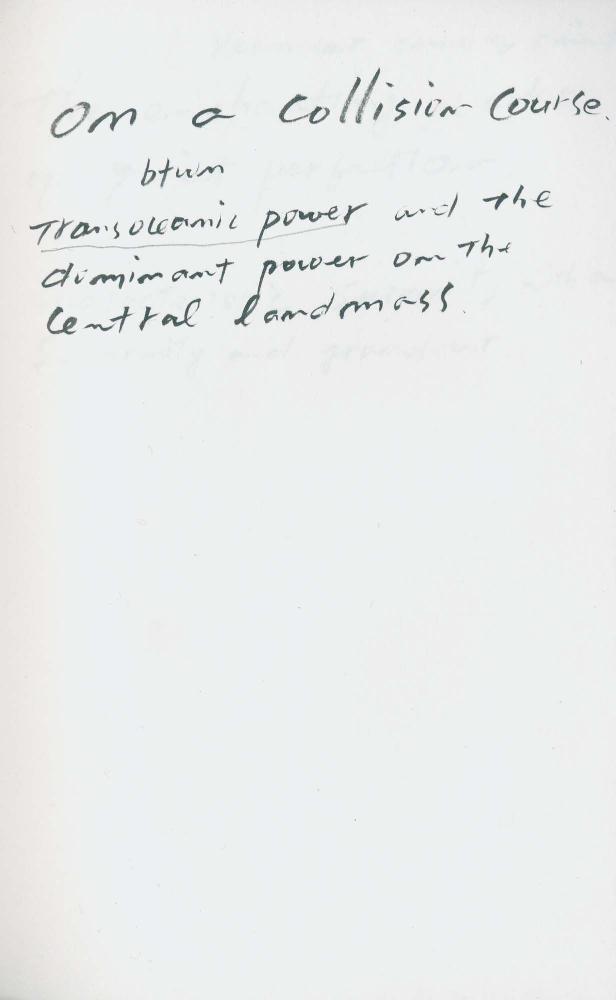 On a Collision Course.
btwn
Transoceanic power and the
dominant power on the
Central landmass.